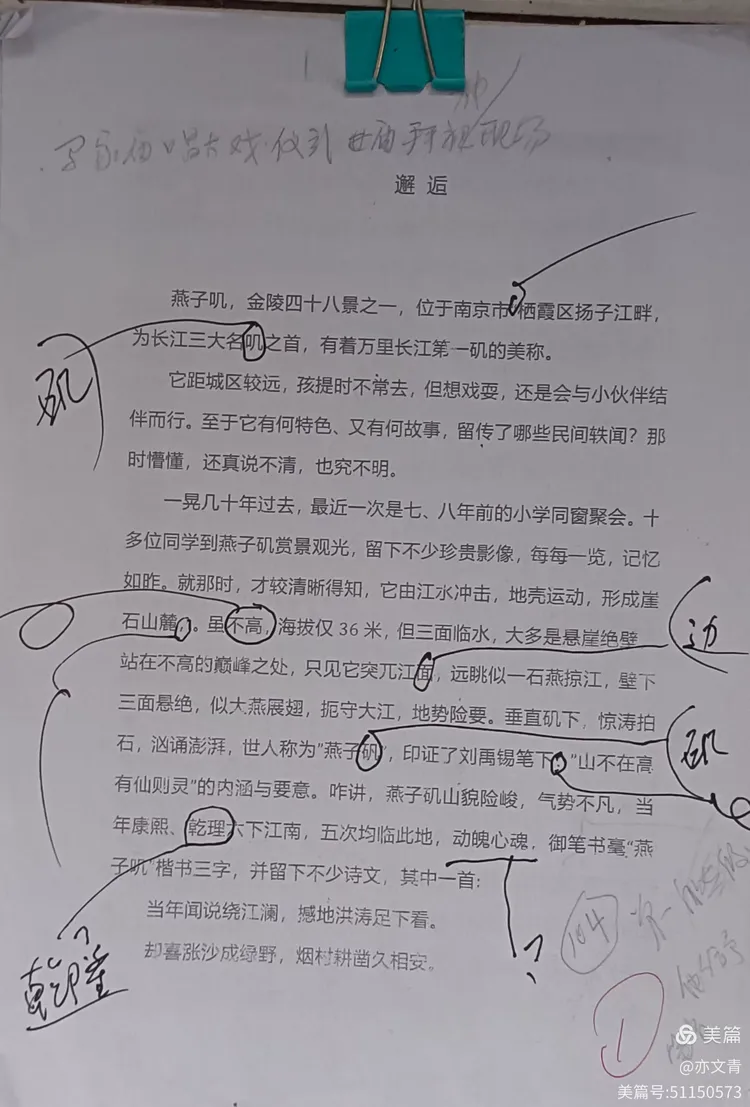 邂逅
燕子叽，金陵四十八景之一，位于南京市栖霞区扬子江畔，
为长江三大名叽之首，有着万里长江第一矶的美称。
它距城区较远，孩提时不常去，但想戏耍，还是会与小伙伴结
伴而行。至于它有何特色、又有何故事，留传了哪些民间轶闻？那
时懵懂，还真说不清，也究不明。
一晃几十年过去，最近一次是七、八年前的小学同窗聚会。十
多位同学到燕子矶赏景观光，留下不少珍贵影像，每每一览，记忆
如昨。就那时，才较清晰得知，它由江水冲击，地壳运动，形成崖
石山麓。虽不高，海拔仅36米，但三面临水，大多是悬崖绝壁
站在不高的巅峰之处，只见它突兀江面，远眺似一石燕掠江，壁下
三面悬绝，似大燕展翅，扼守大江，地势险要。垂直矶下，惊涛拍
石，汹诵澎湃，世人称为"燕子矶"，印证了刘禹锡笔下"山不在高
有仙则灵"的内涵与要意。咋讲，燕子矶山貌险峻，气势不凡，当
年康熙、乾理六下江南，五次均临此地，动魄心魂，御笔书毫"燕
子叽"楷书三字，并留下不少诗文，其中一首：
当年闻说绕江澜，撼地洪涛足下看。
却喜涨沙成绿野，烟村耕凿久相安。
矶
边
矶
乾隆
?
?
104
1
美篇
@亦文青
美篇号:51150573